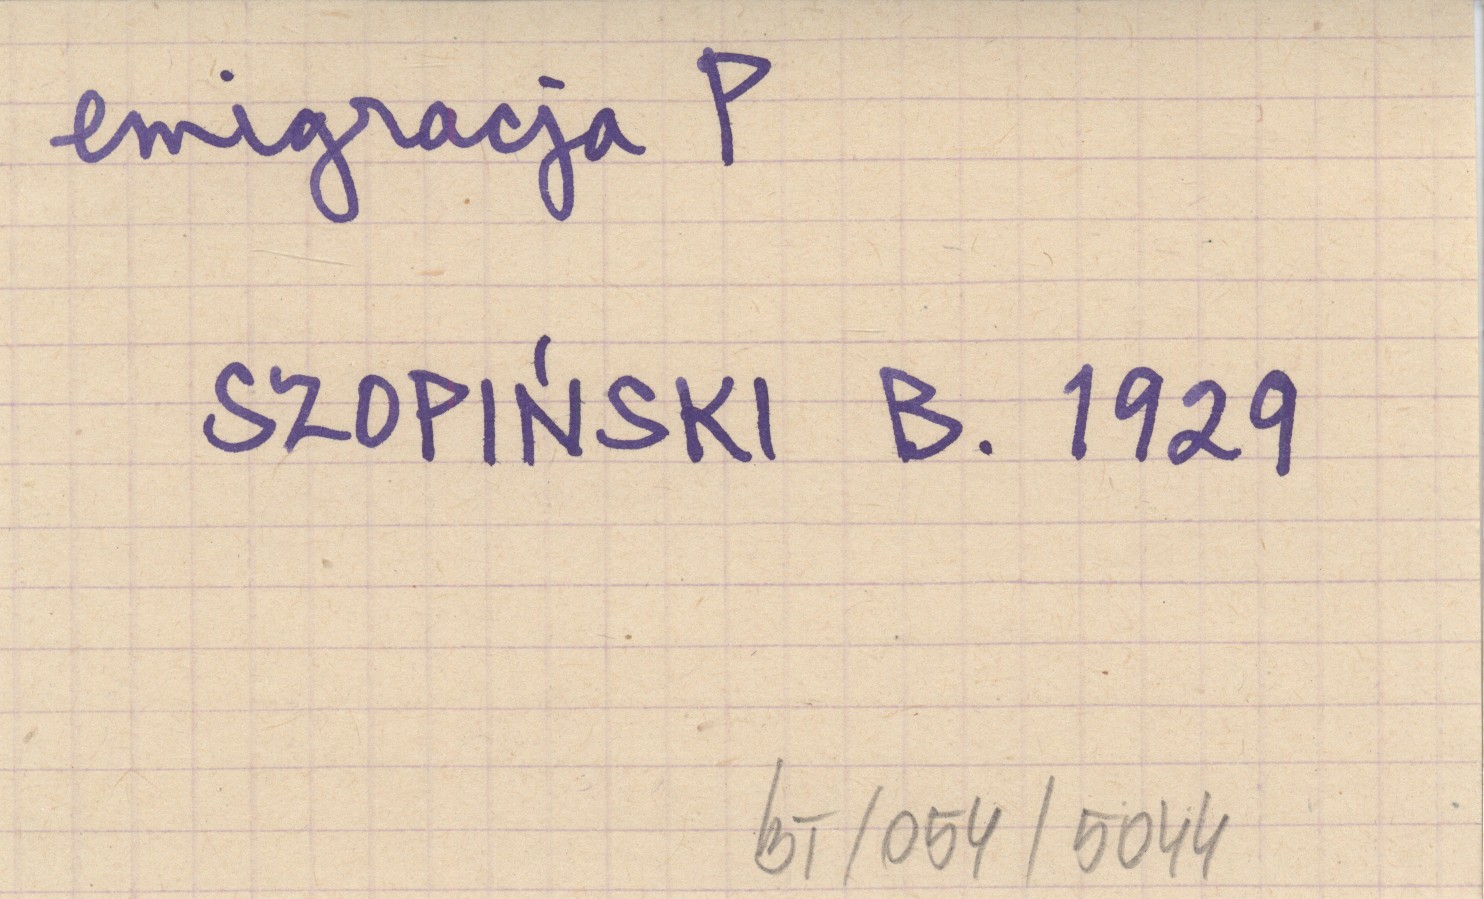 emigracja P
SZOPIŃSKI B. 1929
BI/054/5044